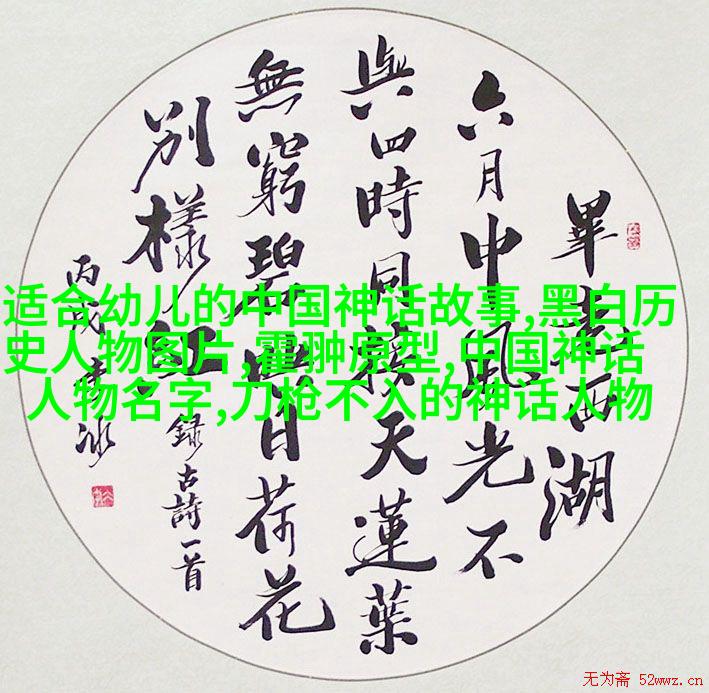 畢竟西湖
六月中風光不
與四時同接天蓮葉
無窮碧映日荷花
別樣紅 錄古詩一首
丙戌 冰
适合幼儿的中国神话故事,黑白历
史人物图片,霍翀原型,中国神话
人物名字,刀枪不入的神话人物
无为斋 52wwz.cn